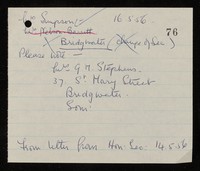 Mr Simpson:- 16.5.56
76
Mr Nelson Bennett
Bridgwater (change of Sec)
Please note
Mrs G. M. Stephens.
37. St Mary Street
Bridgwater.
Som:
From letter from Hon: Sec: 14.5.56